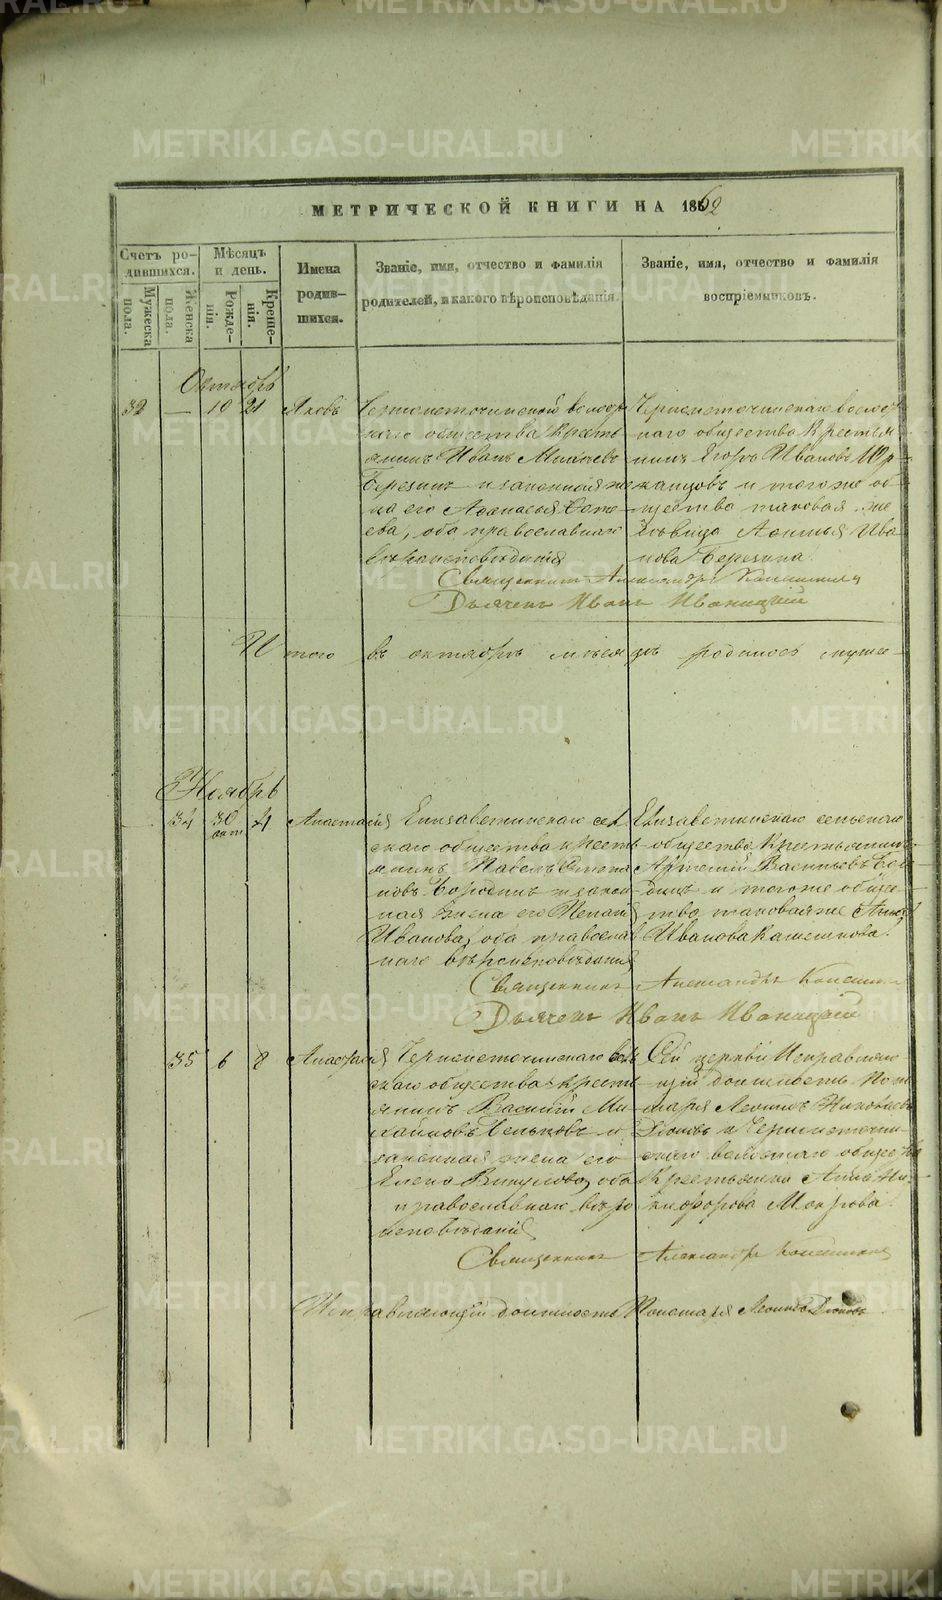 МЕТРИЧЕСКОЙ КНИГИ НА 1862
Счетъ родившихся.
Мужеска пола.
Женска пола.
Мѣсяцъ и день.
Рожденія.
Крещенія.
Имена родившихся.
Званіе, имя, отчество и фамилія родителей, и какого вѣроисповѣданія.
Званіе, имя, отчество и фамилія воспріемниковъ.
Октябрь
32 — 10 21 Яковъ
Черноисточинской волост
наго общества кресть
янинъ Иванъ
Березинъ и законная же
на его Афанасья
ева, оба православнаго
вѣроисповѣданія
Черноисточинскаго волост
наго общества крестья
нинъ Егоръ Ивановъ
и тогоже об
щества таковая же
дѣвица Ива
нова Березина.
Священникъ Александръ
Дьячекъ Иванъ Иваницкій
Итого въ октябрѣ мѣсяцѣ родилось муже
Ноябрь
34 30 окт 4 Анастасія
Елизаветинскаго сель
скаго общества кресть
янинъ Павелъ Степа
новъ Бородинъ и закон
ная жена его
Иванова, оба православ
наго вѣроисповѣданія
Елизаветинскаго сельскаго
общества крестьянинъ
Артемій Васильевъ Боро
динъ и тогоже обще
ства таковая же Анна
Иванова
Священникъ Александръ
Дьячекъ Иванъ Иваницкій
35 6 8 Анастасія
Черноисточинскаго вол
скаго общества кресть
янинъ Василій Ми
хайловъ Бельковъ и
законная жена его
Елена Викулова, оба
православнаго вѣро
исповѣданія
Сей церкви исправляю
щій должность поно
маря Леонидъ Николаевъ
и Черноисточин
скаго волостнаго общества
крестьянка Анна Ни
кифорова Мокрова.
Священникъ Александръ
Исправляющій должность пономаря Леонидъ
METRIKI.GASO-URAL.RU